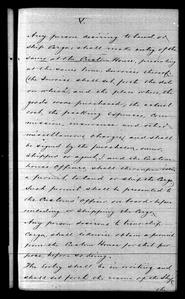 V.
Any person desiring to land or
ship Cargo, shall make entry of the
same at the Custom House, presenting
at the same time, Invoices thereof,
(the Invoice shall set forth the date
on which and the place where the
goods were purchased, the actual
cost, the packing expenses, Com-
missions and other
miscellaneous charges, and shall
be signed by the purchaser, owner,
shipper or agent,) and the Custom
house Officers shall thereupon
a permit to land or ship the Cargo.
Such permit shall be presented to
the Customs' Officer on board before
unlading or shipping the Cargo.
Any person desiring to tranship
Cargo, shall likewise obtain a permit
from the Custom House for that pur-
pose before so doing.
The entry shall be in writing and
shall set forth the name of the Ship